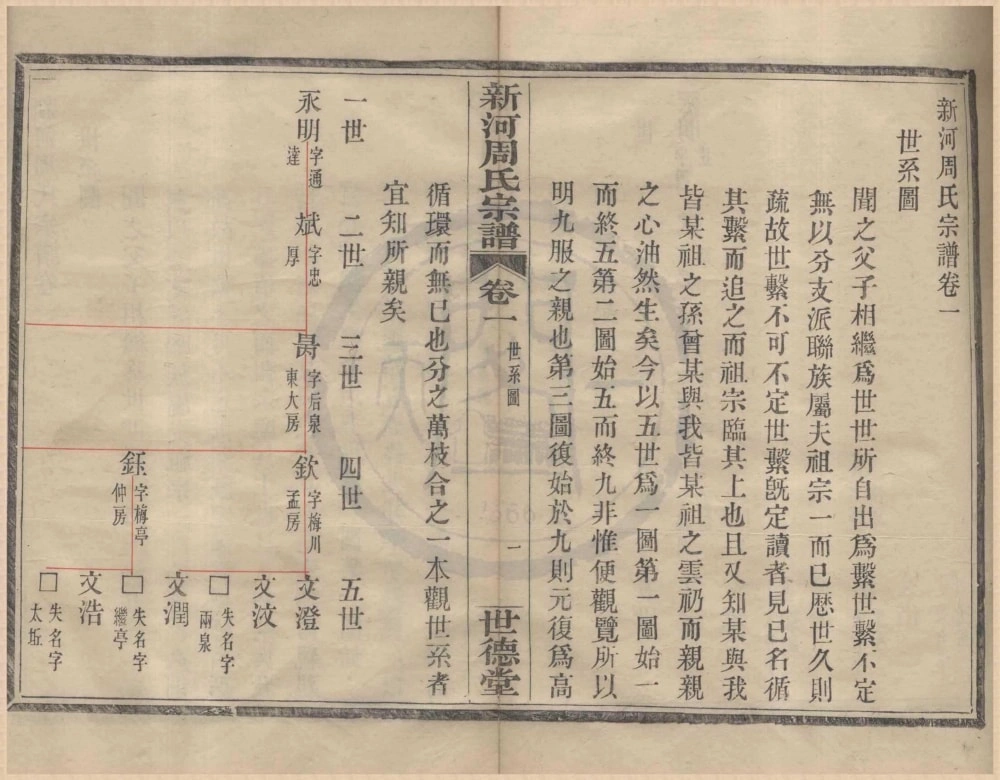 新河周氏宗譜卷一
世系圖
聞之父子相繼爲世世所自出爲繫世繫不定
無以分支派聯族屬夫祖宗一而已歷世久則
疏故世繫不可不定世繫旣定讀者見已名循
其繫而追之而祖宗臨其上也且又知某與我
皆某祖之孫曾某與我皆某祖之雲礽而親親
之心油然生矣今以五世爲一圖第一圖始一
而終五第二圖始五而終九非惟便觀覽所以
明九服之親也第三圖復始於九則元復爲高
新河周氏宗譜 卷一 世系圖 一 世德堂
循環而無已也分之萬枝合之一本觀世系者
宜知所親矣
一世 二世 三世 四世 五世
永明 字通達
斌 字忠厚
昺 字后泉 東大房
欽 字梅川 孟房
文澄
文汶
□ 失名字 兩泉
文潤
鈺 字梅亭 仲房
□ 失名字 繼亭
文浩
□ 失名字 太坵